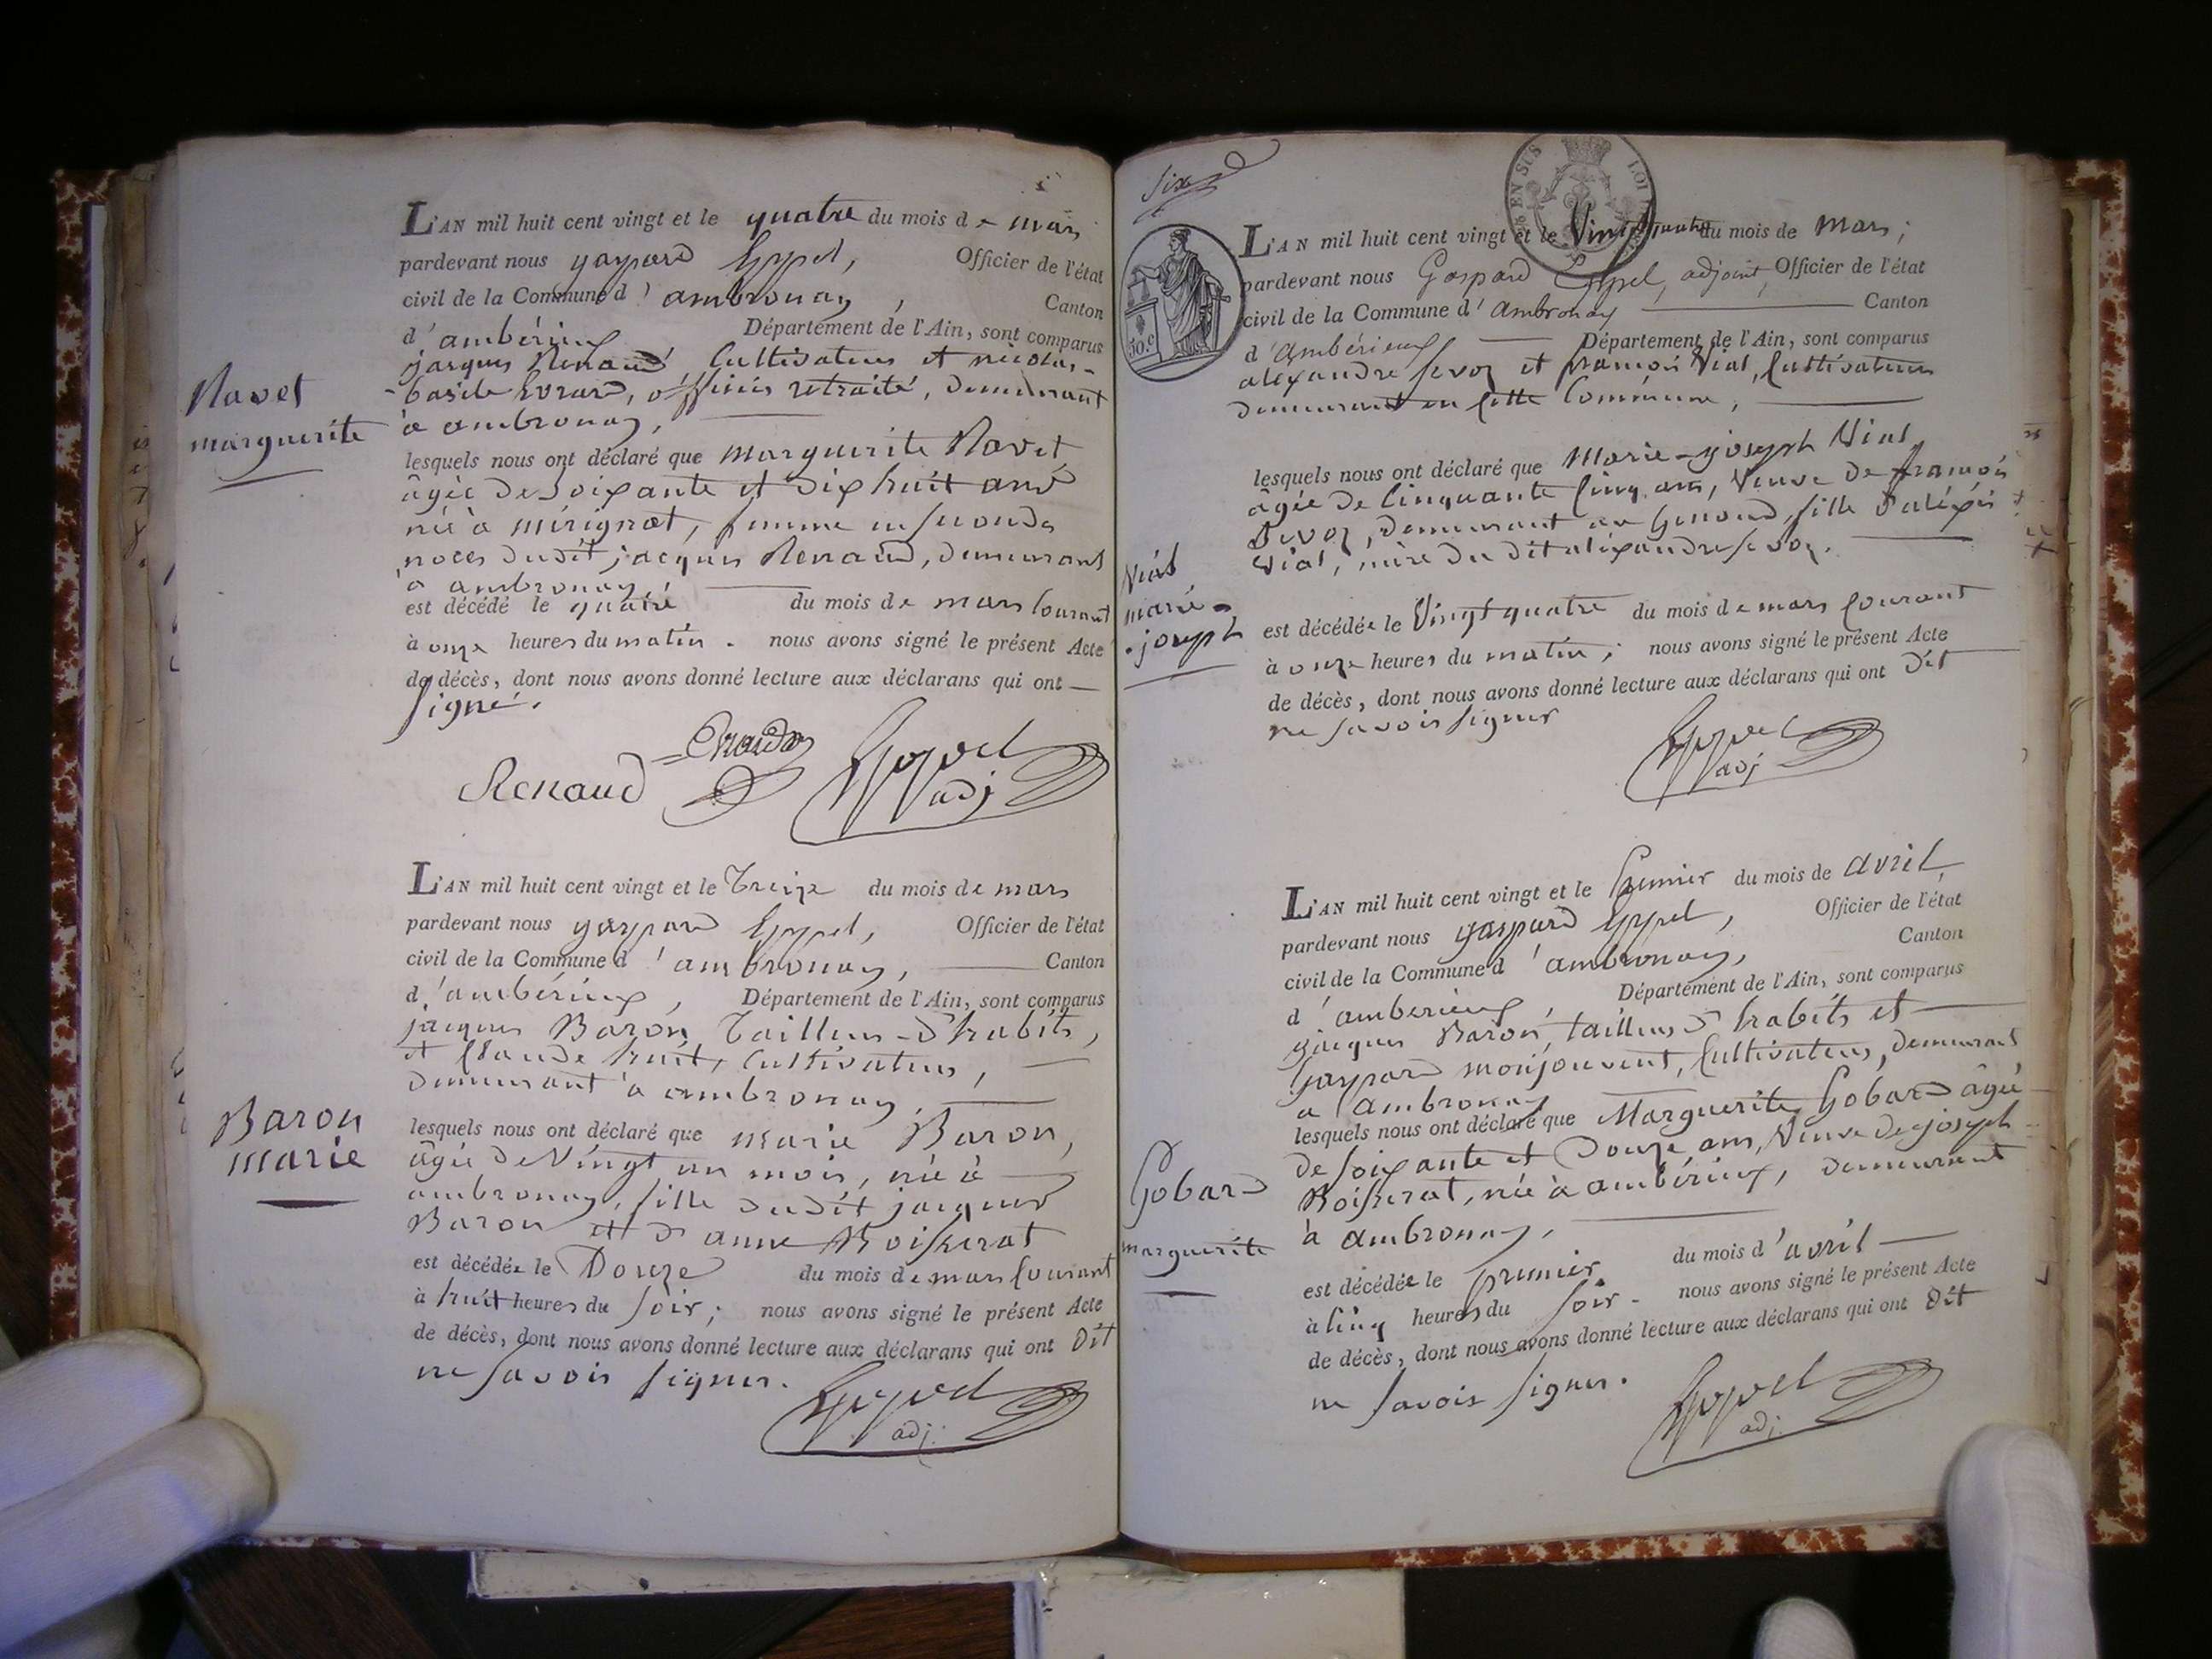 L'AN mil huit cent vingt et le quatre du mois de mars
pardevant nous gaspard Eppel, Officier de l'état
civil de la Commune d'ambronay, Canton
d'ambérieux Département de l'Ain, sont comparus
jacques Renaud, Cultivateur et nicolas-
basile Evrard, officier retraité, demeurant
à ambronay,
Navet
marguerite
lesquels nous ont déclaré que marguerite Navet
âgée de soixante et dix huit ans
née à mérignat, femme en secondes
noces dudit jacques Renaud, demeurant
à ambronay,
est décédé le quatre du mois de mars Courant
à onze heures du matin. nous avons signé le présent Acte
de décès, dont nous avons donné lecture aux déclarans qui ont
signé.
Renaud Eppel
adj
L'AN mil huit cent vingt et le Treize du mois de mars
pardevant nous gaspard Eppel, Officier de l'état
civil de la Commune d'ambronay, Canton
d'ambérieux, Département de l'Ain, sont comparus
jacques Baron, Tailleur-d'habits,
et Claude huit, Cultivateur,
demeurant à ambronay,
Baron
marie
lesquels nous ont déclaré que marie Baron,
âgée de Vingt un mois, née à
ambronay, fille dudit jacques
Baron et d'anne Boisserat
est décédée le Douze du mois de mars Courant
à huit heures du soir; nous avons signé le présent Acte
de décès, dont nous avons donné lecture aux déclarans qui ont dit
ne savoir signer.
Eppel
adj.
Six
EN SUS LOI
50.c
L'AN mil huit cent vingt et le Vingt quatre du mois de mars;
pardevant nous Gaspard Eppel, adjoint, Officier de l'état
civil de la Commune d'ambronay Canton
d'Ambérieux Département de l'Ain, sont comparus
alexandre Sevoz et françois Vial, Cultivateurs
demeurant en Cette Commune,
lesquels nous ont déclaré que Marie-joseph Vial
âgée de Cinquante Cinq ans, Veuve de françois
Sevoz, demeurant au Genoud, fille d'aléxis
Vial, mère du dit aléxandre Sevoz.
Vial
marie-
joseph
est décédée le Vingt quatre du mois de mars Courant
à onze heures du matin; nous avons signé le présent Acte
de décès, dont nous avons donné lecture aux déclarans qui ont dit
ne savoir signer
Eppel
adj
L'AN mil huit cent vingt et le Premier du mois de avril,
pardevant nous gaspard Eppel, Officier de l'état
civil de la Commune d'ambronay, Canton
d'amberieux, Département de l'Ain, sont comparus
jacques Baron, tailleur d'habits et
Gaspard monjouvent, Cultivateur, demeurant
a ambronay
lesquels nous ont déclaré que Marguerite Gobard âgée
de soixante et Douze ans, Veuve de joseph
Boisserat, née à ambérieux, demeurant
à ambronay,
Gobard
marguerite
est décédée le Premier du mois d'avril
à Cinq heures du soir. nous avons signé le présent Acte
de décès, dont nous avons donné lecture aux déclarans qui ont dit
ne savoir signer.
Eppel
adj.